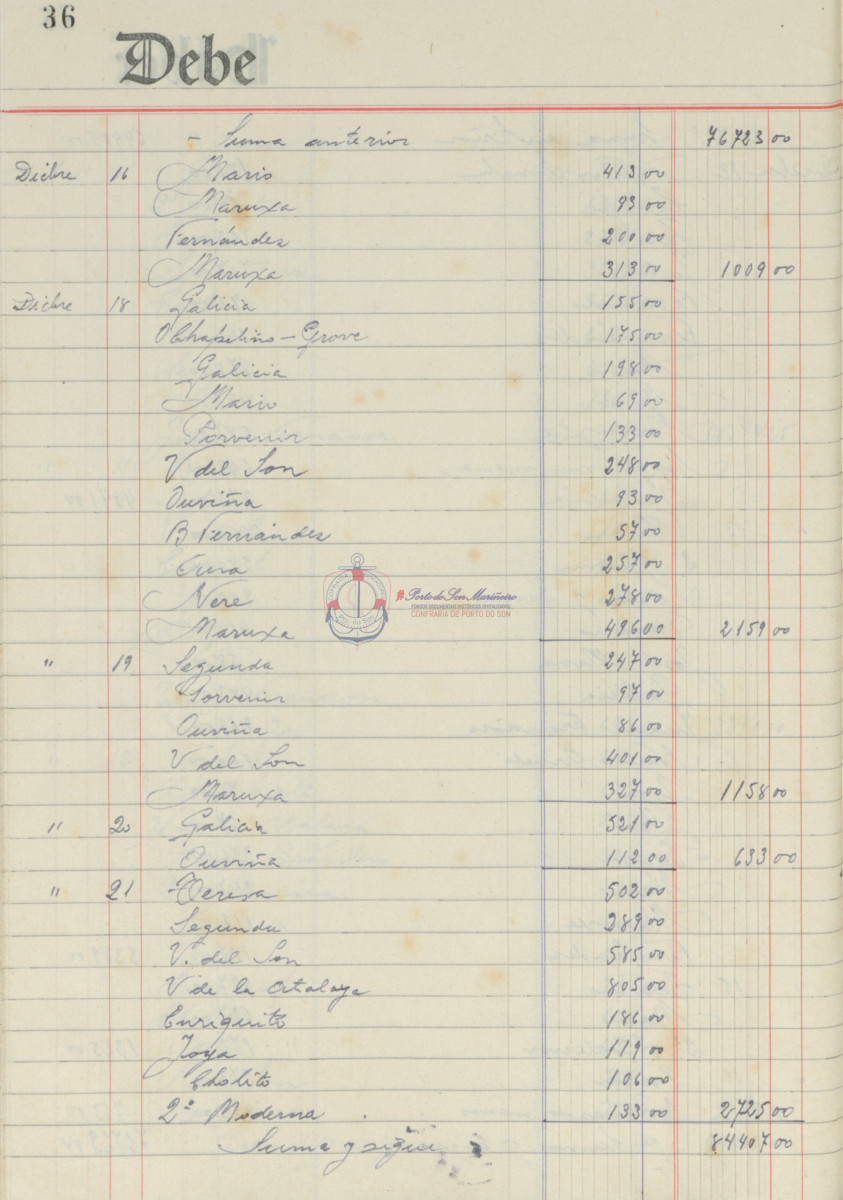 36
Debe
- Suma anterior 76723 00
Dicbre 16 Mario 413 00
Maruxa 93 00
Fernández 200 00
Maruxa 313 00 1009 00
Dicbre 18 Galicia 155 00
O Chapelino - Grove 175 00
Galicia 198 00
Mario 69 00
Porvenir 133 00
V del Son 248 00
Ouviña 93 00
B Fernández 57 00
257 00
Nere 278 00
Maruxa 496 00 2159 00
" 19 Segunda 247 00
Porvenir 97 00
Ouviña 86 00
V del Son 401 00
Maruxa 327 00 1158 00
" 20 Galicia 521 00
Ouviña 112 00 633 00
" 21 Teresa 502 00
Segunda 289 00
V. del Son 585 00
V de la Atalaya 805 00
Enriquito 186 00
Joya 119 00
Cholito 106 00
2ª Moderna 133 00 2725 00
Suma y sigue 84407 00
#Porto do Son Mariñeiro
FONDOS DOCUMENTAIS HISTÓRICOS DIXITALIZADOS
CONFRARÍA DE PORTO DO SON